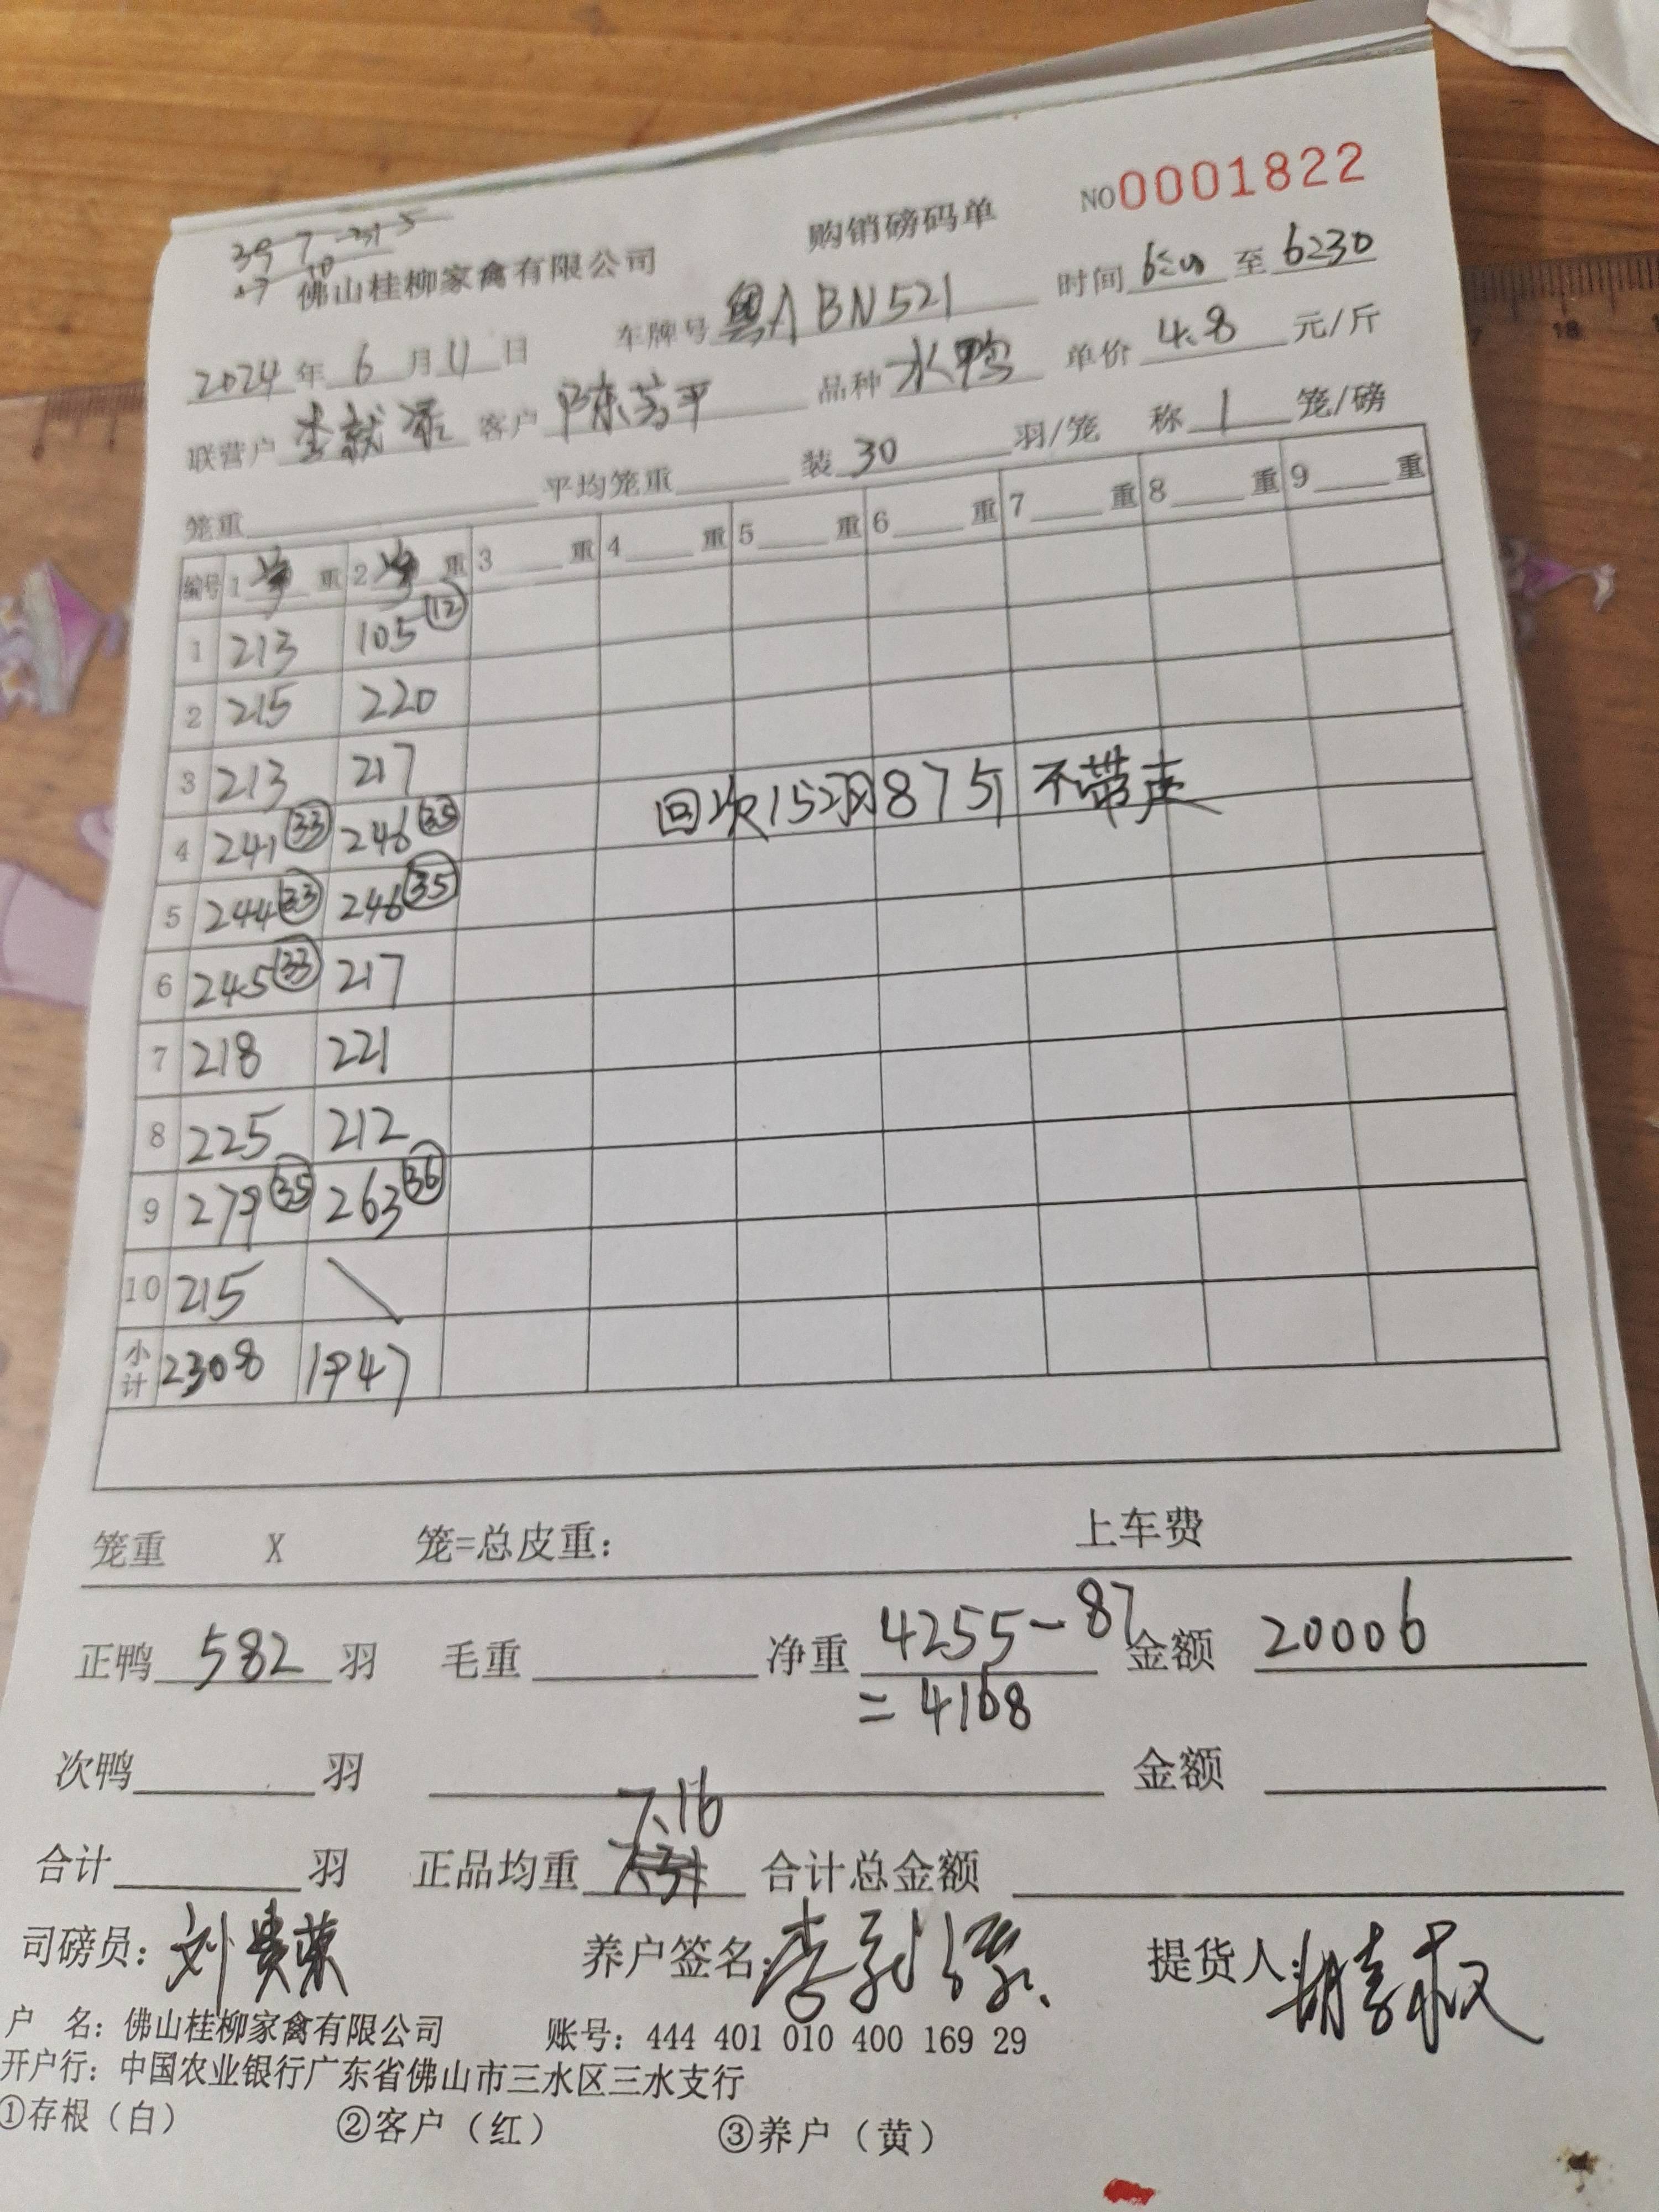 购销磅码单
NO 0001822
佛山桂柳家禽有限公司
2024年6月11日 车牌号 粤ABN521 时间 至 6:30
联营户 李就 客户 陈芳平 品种 水鸭 单价 4.8 元/斤
笼重 平均笼重 装 30 羽/笼 称 1 笼/磅
编号 1 净 重 2 净 重 3 重 4 重 5 重 6 重 7 重 8 重 9 重
1 213 105 (12)
2 215 220
3 213 217
回次15只87斤 不带走
4 241 (33) 246 (35)
5 244 (33) 246 (35)
6 245 (33) 217
7 218 221
8 225 212
9 279 (35) 263 (36)
10 215 \
小计 2308 1947
笼重 X 笼=总皮重: 上车费
正鸭 582 羽 毛重 净重 4255-87 金额 20006
=4168
次鸭 羽 金额
7.16
合计 羽 正品均重 7.31 合计总金额
司磅员: 刘贵荣 养户签名: 李 提货人:
户 名: 佛山桂柳家禽有限公司 账号: 444 401 010 400 169 29
开户行: 中国农业银行广东省佛山市三水区三水支行
①存根（白） ②客户（红） ③养户（黄）